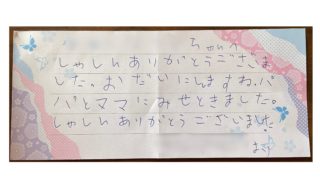 ちゃんへ
しゃしんありがとうございま
した。おだいじにしますね。パ
パとママにみせときました。
しゃしんありがとうございました。
より